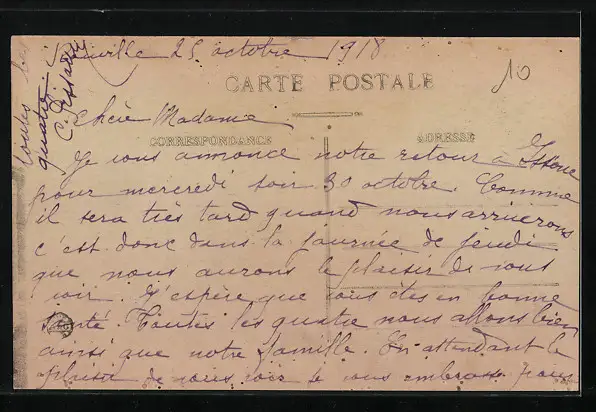 25 octobre 1918
10
CARTE POSTALE
Chère Madame
CORRESPONDANCE
ADRESSE
Je vous annonce notre retour à
pour mercredi soir 30 octobre. Comme
il sera très tard quand nous arriverons
c'est donc dans la journée de jeudi
que nous aurons le plaisir de vous
voir. J'espère que vous êtes en bonne
santé. Toutes les quatre nous allons bien
ainsi que notre famille. En attendant le
plaisir de vous voir je vous embrasse pour
toutes les
quatre
C.